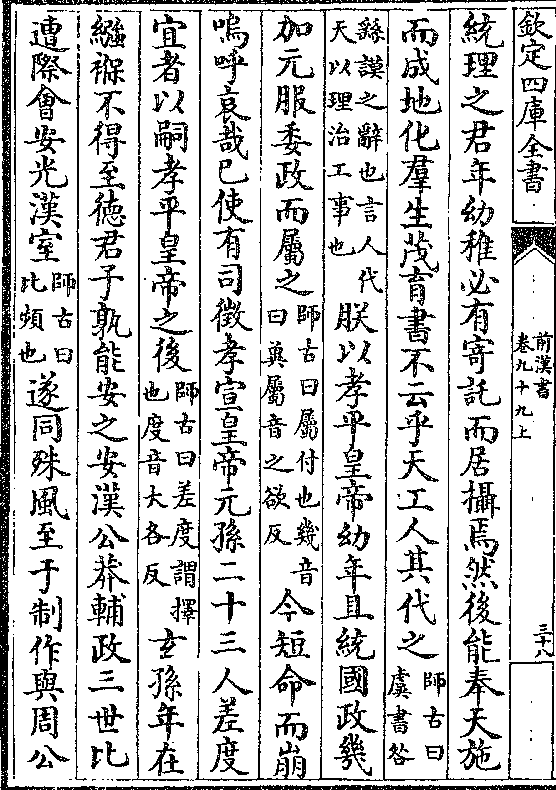 欽定四庫全書
前漢書
卷九十九上
三十八
統理之君年幼稚必有寄託而居攝焉然後能奉天施
而成地化羣生茂育書不云乎天工人其代之師古曰虞書咎
繇謨之辭也言人代天以理治工事也朕以孝平皇帝幼年且統國政幾
加元服委政而屬之師古曰屬付也幾音曰冀屬音之欲反今短命而崩
嗚呼哀哉已使有司徵孝宣皇帝元孫二十三人差度
宜者以嗣孝平皇帝之後師古曰差度謂擇也度音大各反玄孫年在
繈褓不得至德君子孰能安之安漢公莽輔政三世比
遭際會安光漢室師古曰比頻也遂同殊風至于制作與周公